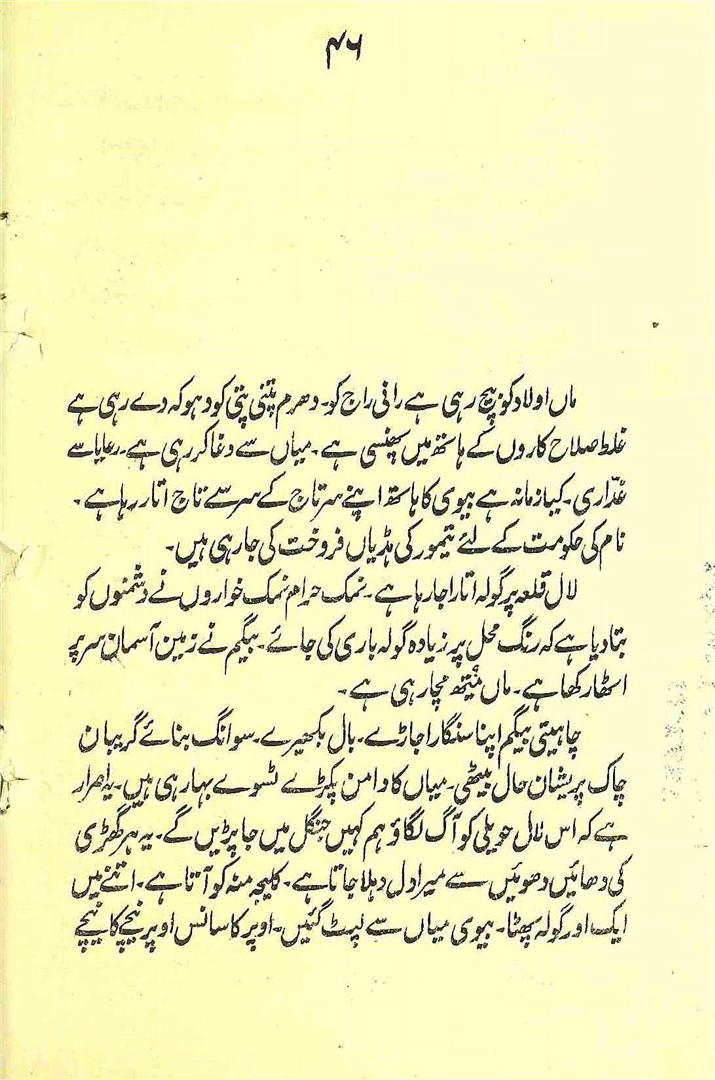 ۴۶
ماں اولاد کو بیچ رہی ہے رانی راج کو۔ دھرم پتنی پتی کو دہوکہ دے رہی ہے
غلط صلاح کاروں کے ہاتھ میں پھنسی ہے۔ میاں سے دغا کر رہی ہے۔ رعایا سے
غدّاری۔ کیا زمانہ ہے بیوی کا ہاتھ اپنے سرتاج کے سر سے تاج اتار رہا ہے۔
نام کی حکومت کے لئے تیمور کی ہڈیاں فروخت کی جا رہی ہیں۔
لال قلعہ پر گولہ اتارا جا رہا ہے۔ نمک حرام نمک خواروں نے دشمنوں کو
بتا دیا ہے کہ رنگ محل پر زیادہ گولہ باری کی جائے۔ بیگم نے زمین آسمان سر پر
اٹھا رکھا ہے۔ ماں مچا رہی ہے۔
چاہیتی بیگم اپنا سنگار اجاڑے۔ بال بکھیرے۔ سوانگ بنائے گریبان
چاک پریشان حال بیٹھی۔ میاں کا دامن پکڑے ٹسوے بہا رہی ہیں۔ یہ اصرار
ہے کہ اس لال حویلی کو آگ لگاؤ ہم کہیں جنگل میں جا پڑیں گے۔ یہ ہر گھڑی
کی دھائیں دھوئیں سے میرا دل دہلا جاتا ہے۔ کلیجہ منہ کو آتا ہے۔ اتنے میں
ایک اور گولہ پھٹا۔ بیوی میاں سے لپٹ گئیں۔ اوپر کا سانس اوپر نیچے کا نیچے